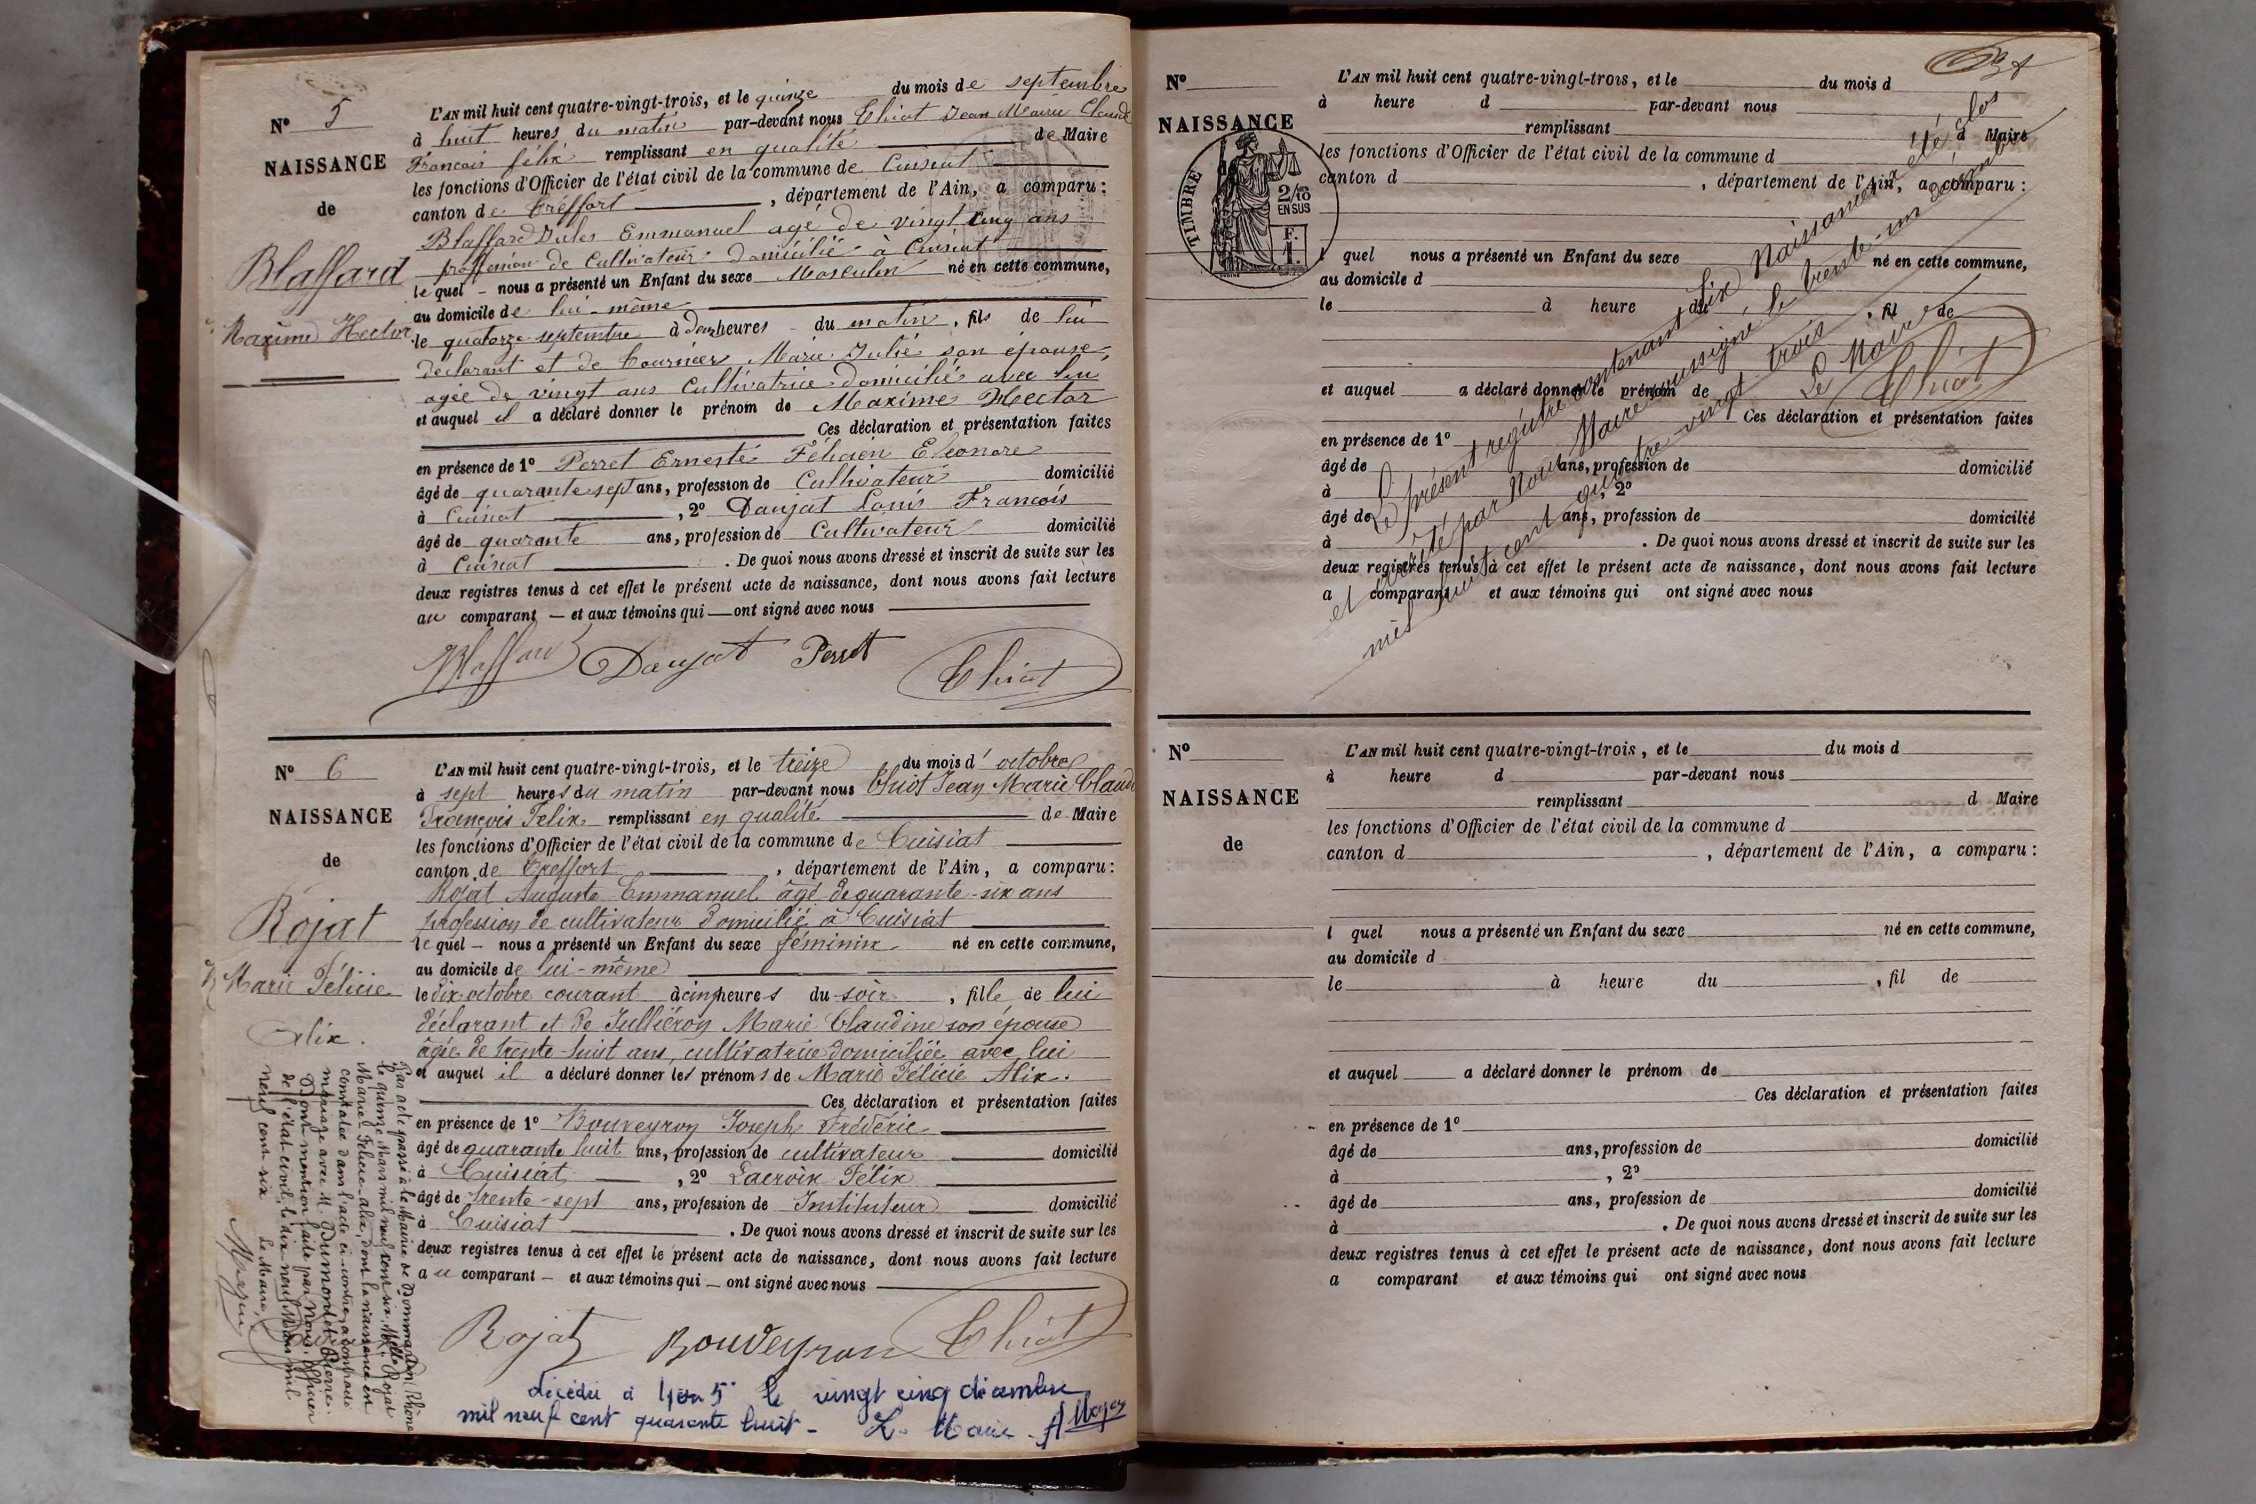 N° 5
NAISSANCE
de
Blaffard
Maxime Hector
L'AN mil huit cent quatre-vingt-trois, et le quinze du mois de septembre
à huit heures du matin par-devant nous Chiot Jean Marie Claude
François félix remplissant en qualité de Maire
les fonctions d'Officier de l'état civil de la commune de Cuisiat
canton de Treffort, département de l'Ain, a comparu:
Blaffard Jules Emmanuel agé de vingt cinq ans
proffession de Cultivateur domicilié à Cuisiat
lequel – nous a présenté un Enfant du sexe Masculin né en cette commune,
au domicile de lui-même
le quatorze septembre à deux heures du matin, fils de lui
déclarant et de Tournier Marie Julie son épouse
agée de vingt ans Cultivatrice domiciliée avec lui
et auquel il a déclaré donner le prénom de Maxime Hector
Ces déclaration et présentation faites
en présence de 1° Perret Ernest Félicien Eléonore
âgé de quarante sept ans, profession de Cultivateur domicilié
à Cuisiat, 2° Daujat Louis François
âgé de quarante ans, profession de Cultivateur domicilié
à Cuisiat. De quoi nous avons dressé et inscrit de suite sur les
deux registres tenus à cet effet le présent acte de naissance, dont nous avons fait lecture
au comparant – et aux témoins qui – ont signé avec nous
Blaffard Daujat Perret Chiot
N° 6
NAISSANCE
de
Rojat
Marie Félicie
Alix.
L'AN mil huit cent quatre-vingt-trois, et le treize du mois d'octobre
à sept heures du matin par-devant nous Chiot Jean Marie Claude
François Félix remplissant en qualité de Maire
les fonctions d'Officier de l'état civil de la commune de Cuisiat
canton de Treffort, département de l'Ain, a comparu:
Rojat Auguste Emmanuel âgé de quarante-six ans
profession de cultivateur domicilié à Cuisiat
lequel – nous a présenté un Enfant du sexe féminin né en cette commune,
au domicile de lui-même
le dix octobre courant à cinq heures du soir, fille de lui
déclarant et de Julliéron Marie Claudine son épouse
âgée de trente-huit ans, cultivatrice domiciliée avec lui
et auquel il a déclaré donner les prénoms de Marie Félicie Alix.
Ces déclaration et présentation faites
en présence de 1° Bouveyron Joseph Frédéric
âgé de quarante huit ans, profession de cultivateur domicilié
à Cuisiat, 2° Lacroix Félix
âgé de trente-sept ans, profession de Instituteur domicilié
à Cuisiat. De quoi nous avons dressé et inscrit de suite sur les
deux registres tenus à cet effet le présent acte de naissance, dont nous avons fait lecture
au comparant – et aux témoins qui – ont signé avec nous
Rojat Bouveyron Chiot
Par acte passé à la Mairie de Dommartin Rhône
le quinze Mars mil neuf cent six, Melle Rojat
Marie Félicie Alix, dont la naissance est
constatée dans l'acte ci-contre, a contracté
mariage avec M. Dumontet Pierre.
Dont mention faite par nous, officier
de l'état-civil, le dix-neuf Mars mil
neuf cent six Le Maire,
décédée à Lyon 5e le vingt cinq décembre
mil neuf cent quarante huit – Le Maire
N°
NAISSANCE
TIMBRE
2/10 EN SUS
F. 1.
L'AN mil huit cent quatre-vingt-trois, et le du mois d
à heure d par-devant nous
remplissant d Maire
les fonctions d'Officier de l'état civil de la commune d
canton d , département de l'Ain, a comparu:
l quel nous a présenté un Enfant du sexe né en cette commune,
au domicile d
le à heure du , fil de
et auquel a déclaré donner le prénom de
Ces déclaration et présentation faites
en présence de 1°
âgé de ans, profession de domicilié
à , 2°
âgé de ans, profession de domicilié
à . De quoi nous avons dressé et inscrit de suite sur les
deux registres tenus à cet effet le présent acte de naissance, dont nous avons fait lecture
a comparant et aux témoins qui ont signé avec nous
Le présent registre contenant six Naissances a été clos
et arrêté par Nous Maire soussigné le trente-un décembre
mil huit cent quatre-vingt trois
Le Maire
Chiot
N°
NAISSANCE
de
L'AN mil huit cent quatre-vingt-trois, et le du mois d
à heure d par-devant nous
remplissant d Maire
les fonctions d'Officier de l'état civil de la commune d
canton d , département de l'Ain, a comparu:
l quel nous a présenté un Enfant du sexe né en cette commune,
au domicile d
le à heure du , fil de
et auquel a déclaré donner le prénom de
Ces déclaration et présentation faites
en présence de 1°
âgé de ans, profession de domicilié
à , 2°
âgé de ans, profession de domicilié
à . De quoi nous avons dressé et inscrit de suite sur les
deux registres tenus à cet effet le présent acte de naissance, dont nous avons fait lecture
a comparant et aux témoins qui ont signé avec nous